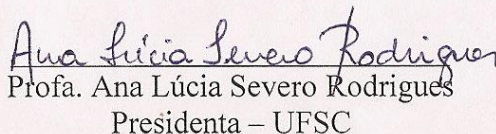 Ana Lúcia Severo Rodrigues
Profa. Ana Lúcia Severo Rodrigues
Presidenta – UFSC